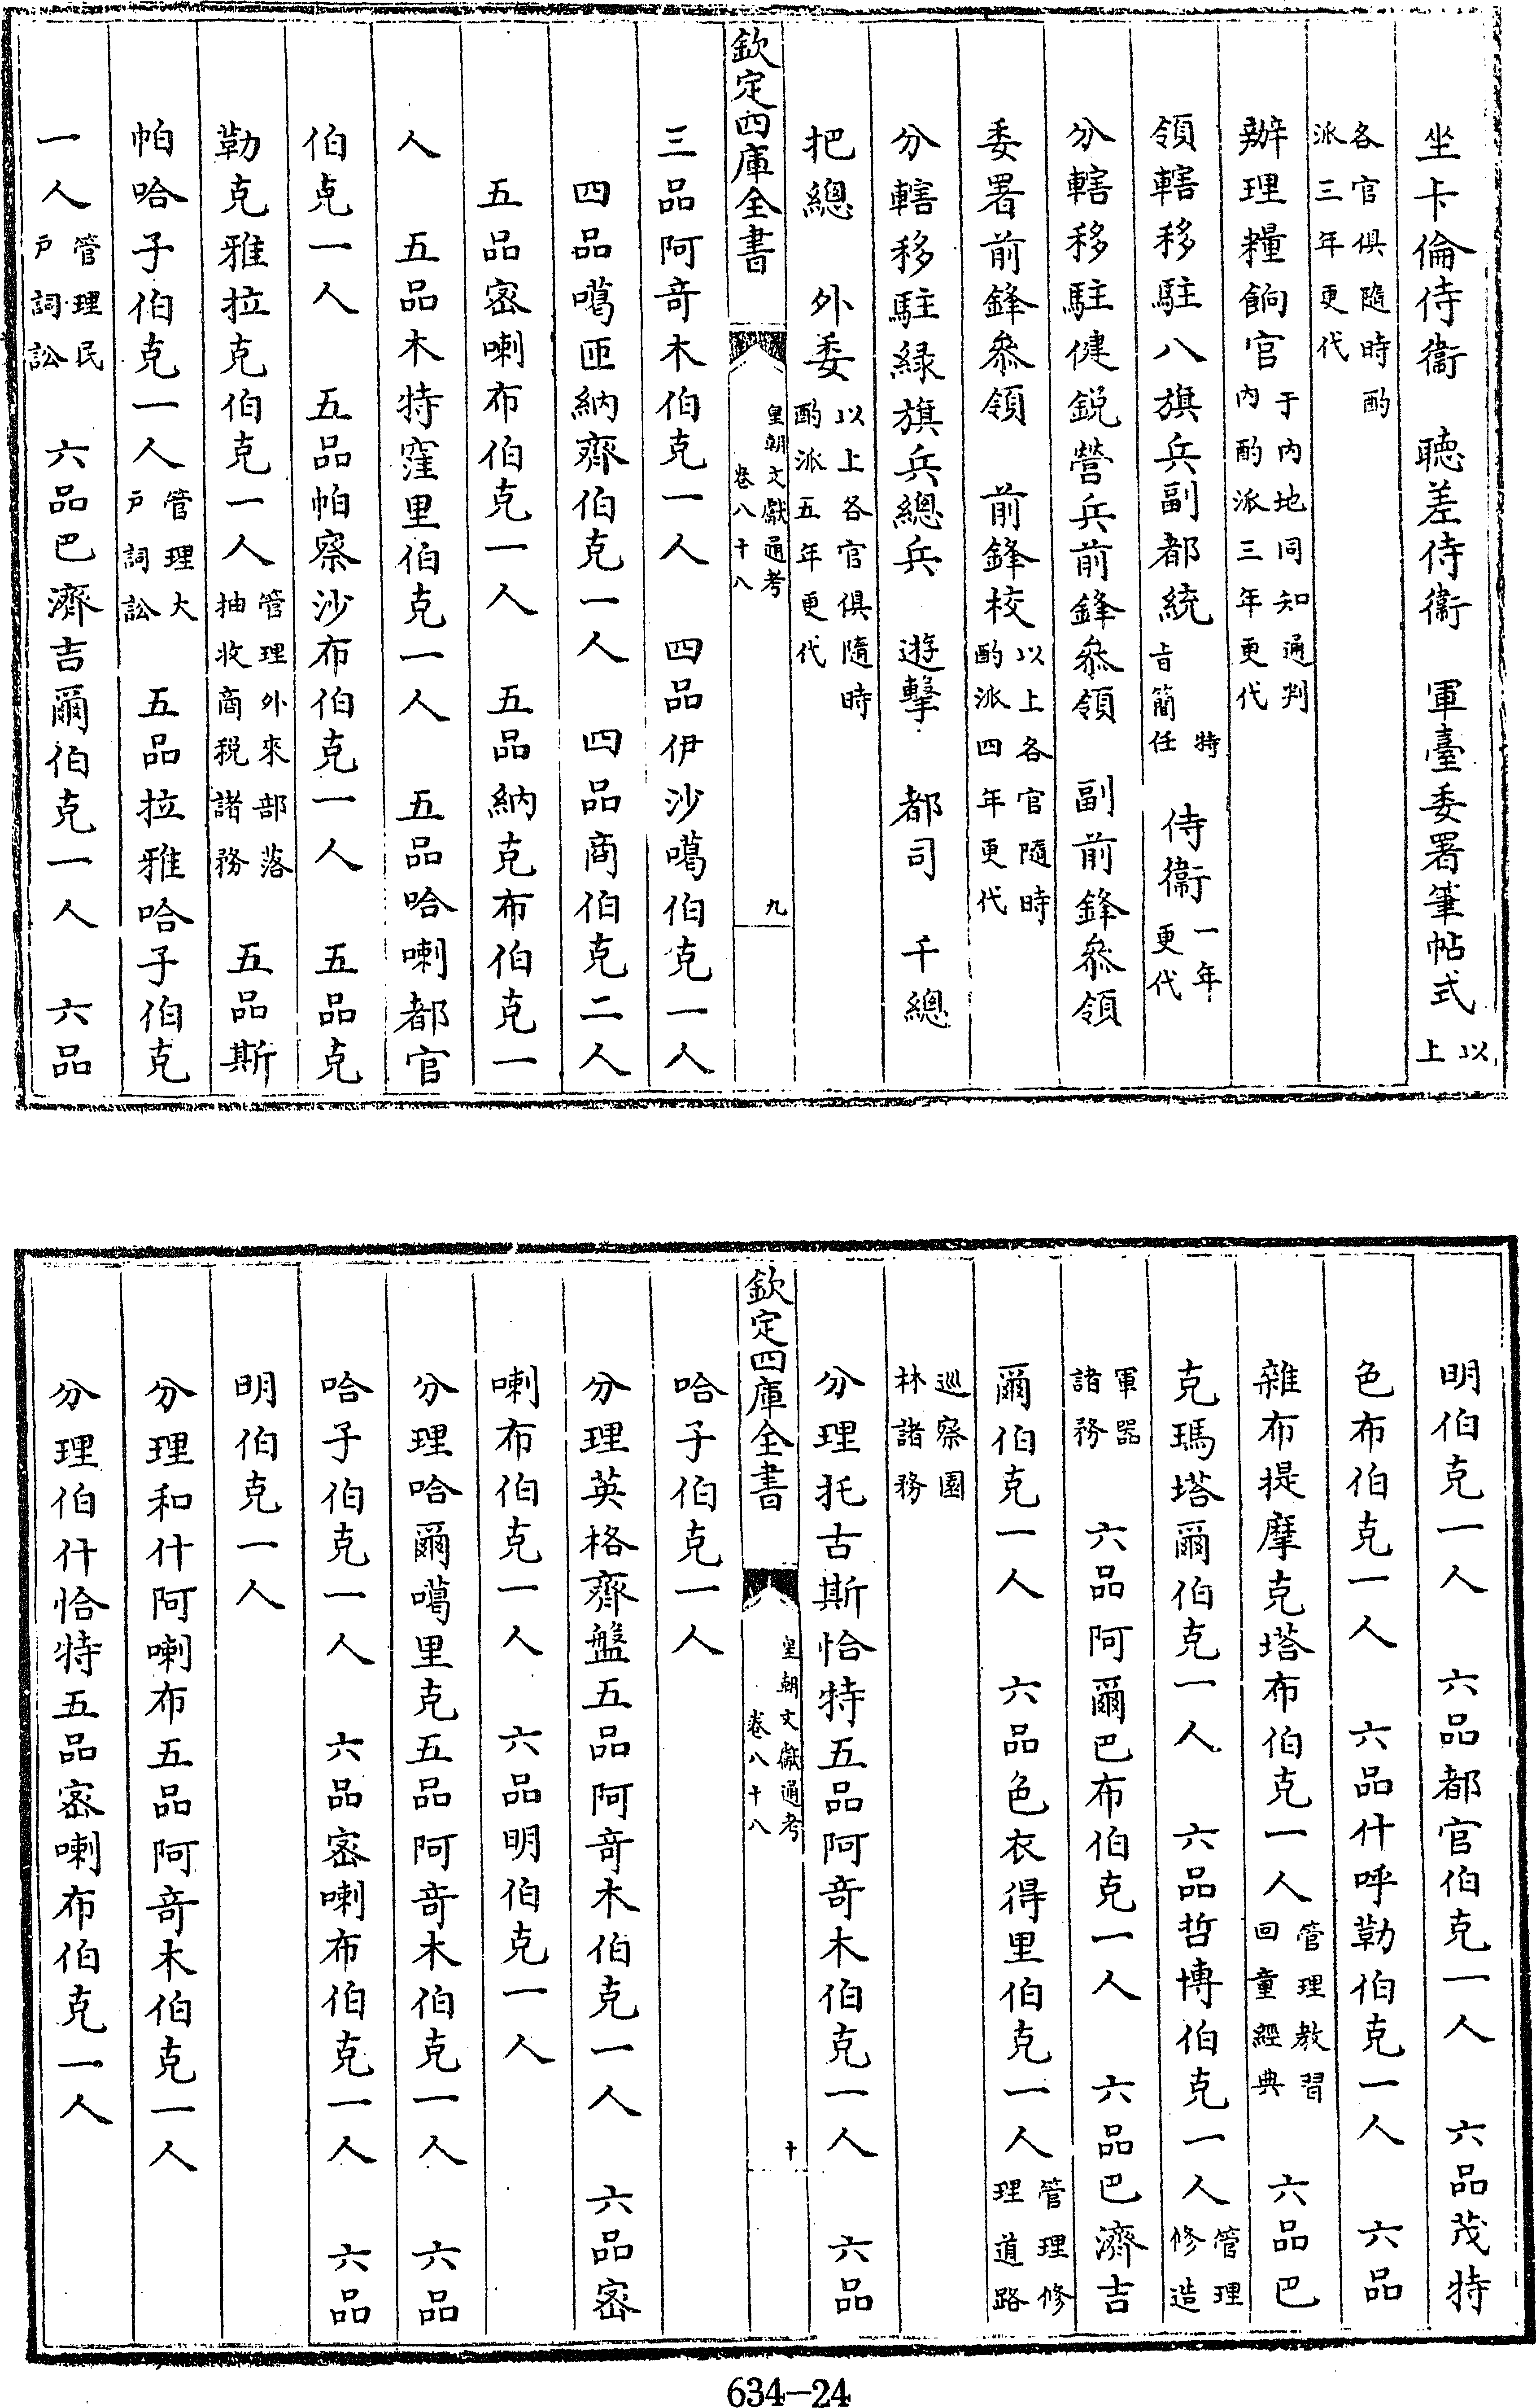 坐卡倫侍衞　聽差侍衞　軍臺委署筆帖式以上
各官俱隨時酌派三年更代
辦理糧餉官于内地同知通判内酌派三年更代
領轄移駐八旗兵副都統特旨簡任　侍衞一年更代
分轄移駐健銳營兵前鋒叅領　副前鋒叅領
委署前鋒叅領　前鋒校以上各官隨時酌派四年更代
分轄移駐緑旗兵總兵　遊擊　都司　千總
把總　外委以上各官俱隨時酌派五年更代
欽定四庫全書　皇朝文獻通考卷八十八　九
三品阿竒木伯克一人　四品伊沙噶伯克一人
四品噶匝納齊伯克一人　四品商伯克二人
五品密喇布伯克一人　五品納克布伯克一
人　五品木特窪里伯克一人　五品哈喇都官
伯克一人　五品帕察沙布伯克一人　五品克
勒克雅拉克伯克一人管理外來部落抽收商税諸務　五品斯
帕哈子伯克一人管理大戶詞訟　五品拉雅哈子伯克
一人管理民戶詞訟　六品巴濟吉爾伯克一人　六品
明伯克一人　六品都官伯克一人　六品茂特
色布伯克一人　六品什呼勒伯克一人　六品
雜布提摩克塔布伯克一人管理教習回童經典　六品巴
克瑪塔爾伯克一人　六品哲博伯克一人管理修造
軍器諸務　六品阿爾巴布伯克一人　六品巴濟吉
爾伯克一人　六品色衣得里伯克一人管理修理道路
巡察園林諸務
分理托古斯恰特五品阿竒木伯克一人　六品
欽定四庫全書　皇朝文獻通考卷八十八　十
哈子伯克一人
分理英格齊盤五品阿竒木伯克一人　六品密
喇布伯克一人　六品明伯克一人
分理哈爾噶里克五品阿竒木伯克一人　六品
哈子伯克一人　六品密喇布伯克一人　六品
明伯克一人
分理和什阿喇布五品阿竒木伯克一人
分理伯什恰特五品密喇布伯克一人
634-24